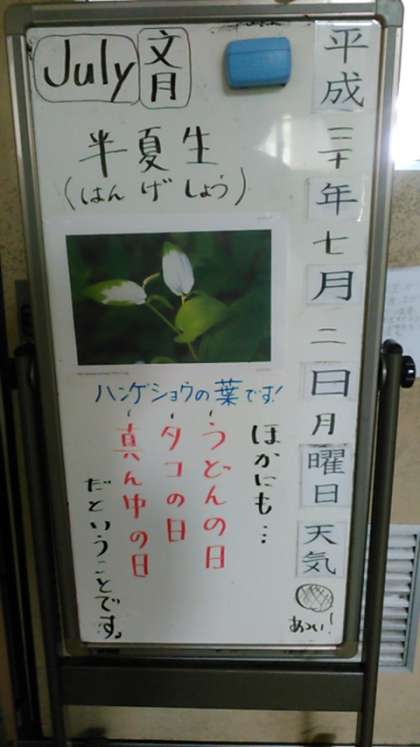 July 文月
平成三十年七月二日月曜日天気
あつい!
半夏生
(はんげしょう)
ハンゲショウの葉です!
ほかにも…
～うどんの日
～タコの日
～真ん中の日
だということです。